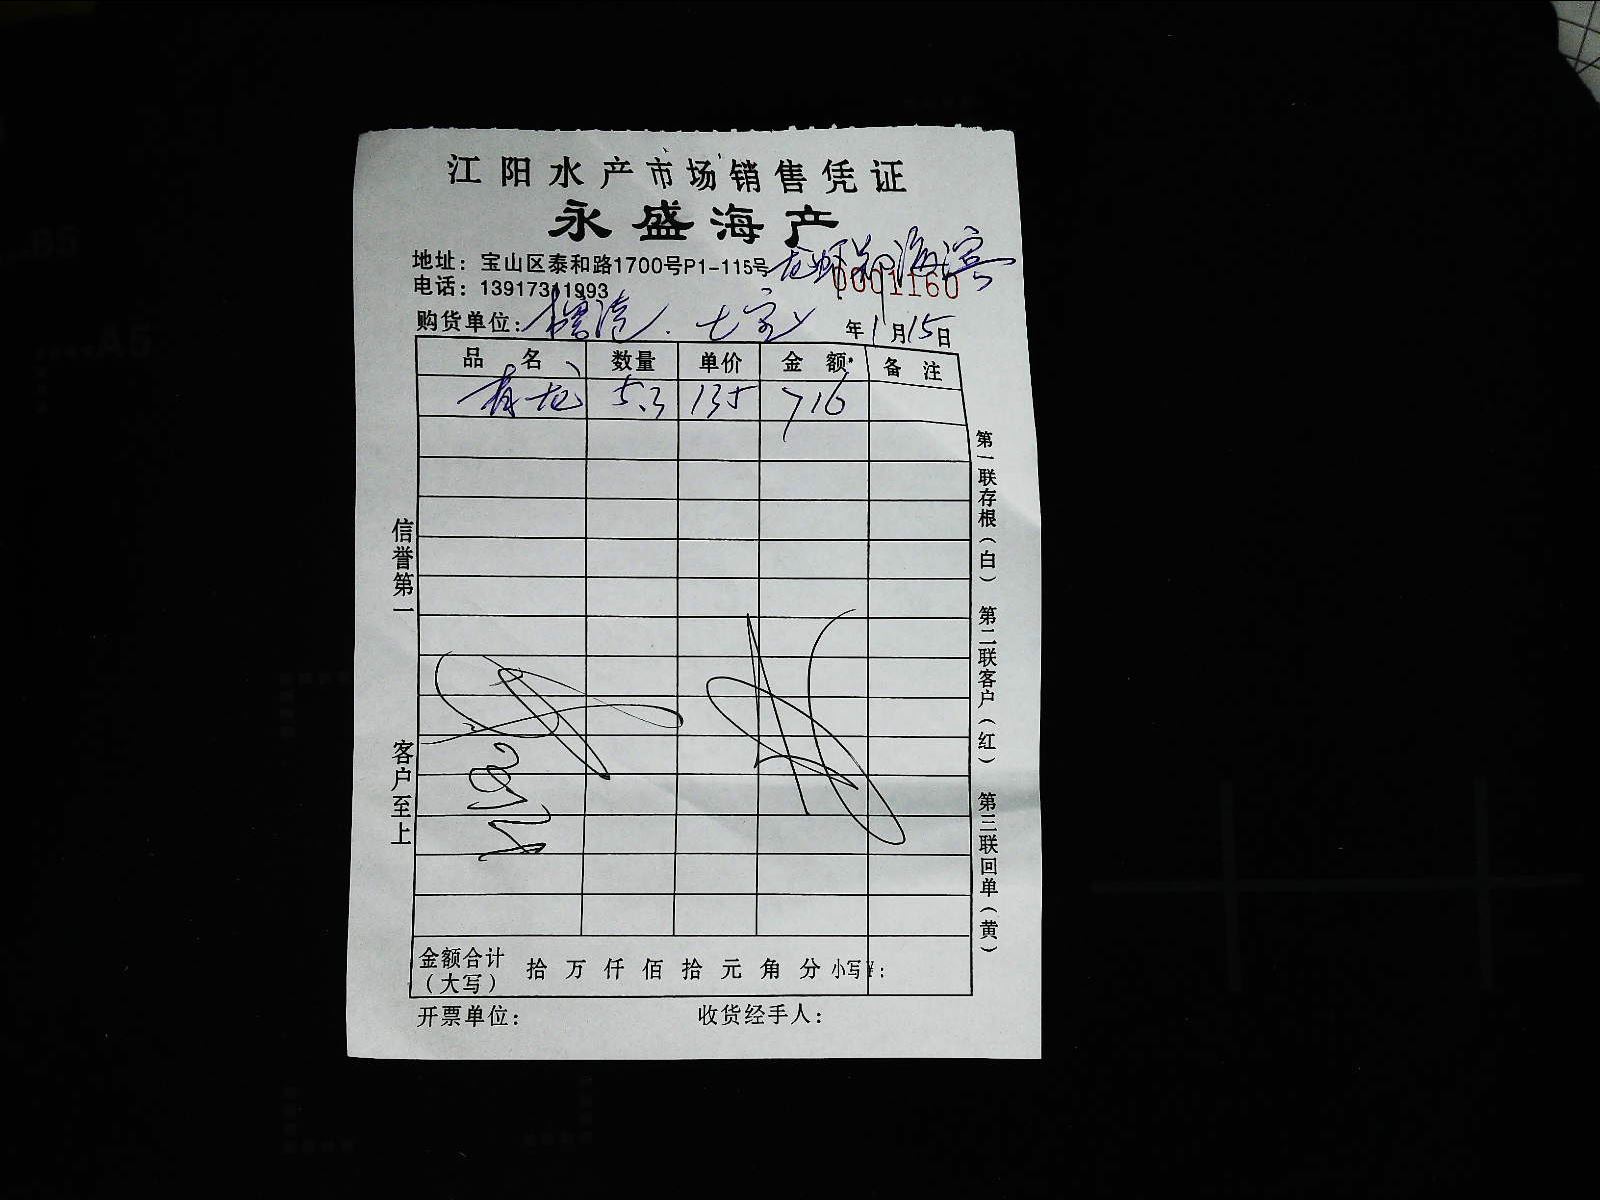 江阳水产市场销售凭证
永盛海产
地址：宝山区泰和路1700号P1-115号
龙虾 海滨
电话：13917311993
0001160
购货单位： 年1月15日
品名 数量 单价 金额 备注
青龙 5.3 135 716
信誉第一
客户至上
第一联存根（白） 第二联客户（红） 第三联回单（黄）
金额合计（大写） 拾万仟佰拾元角分 小写¥：
开票单位： 收货经手人：